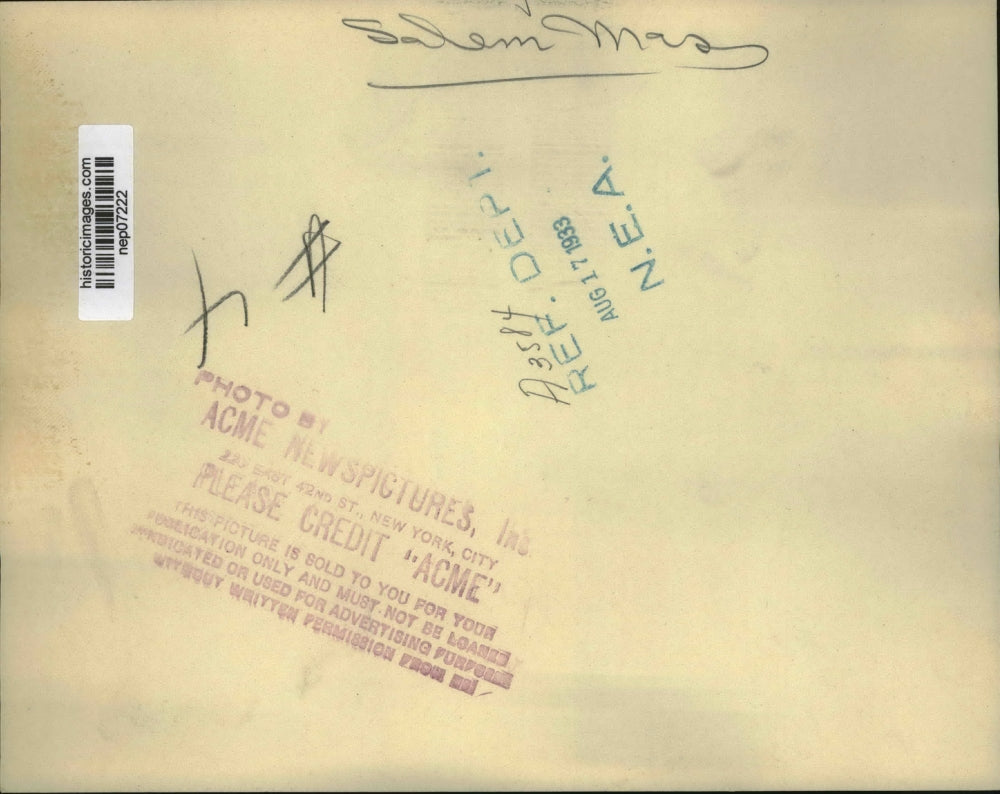 Salem Mas
historicimages.com
nep07222
REF. DEPT.
AUG 17 1933
N.E.A.
A3584
PHOTO BY
ACME NEWSPICTURES, INC.
220 EAST 42ND ST., NEW YORK, CITY
PLEASE CREDIT "ACME"
THIS PICTURE IS SOLD TO YOU FOR YOUR
PUBLICATION ONLY AND MUST NOT BE LOANED
SYNDICATED OR USED FOR ADVERTISING PURPOSES
WITHOUT WRITTEN PERMISSION FROM